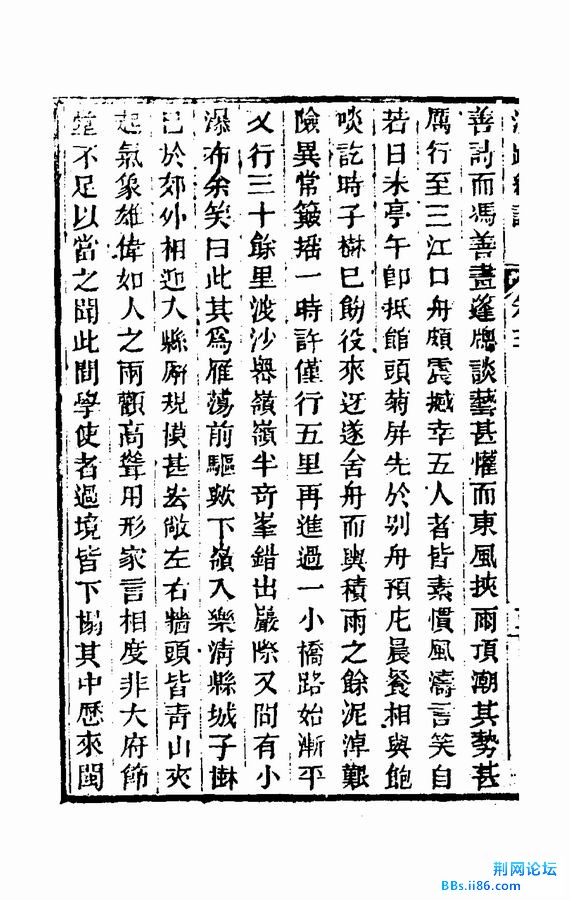 善詩而馮善畫蓬牕談藝甚懽而東風挾雨頂潮其勢甚
厲行至三江口舟頗震撼幸五人者皆素慣風濤言笑自
若日未亭午卽抵館頭菊屏先於別舟預庀晨餐相與飽
啖訖時子楙巳飭役來迓遂舍舟而輿積雨之餘泥淖艱
險異常簸播一時許僅行五里再進過一小橋路始漸平
又行三十餘里沙嶺嶺半奇峯錯出巖際又間有小
瀑布余笑曰此其爲雁蕩前驅歟下嶺入樂淸縣城子楙
已於郊外相迎入縣廨規模甚敞左右牆頭皆靑山夾
起氣象雄偉如人之兩顴高聳用形家言相度非大府節
不足以當之聞此間學使者過境皆下榻其中歷來閩
荆网论坛
BBs.ii86.com